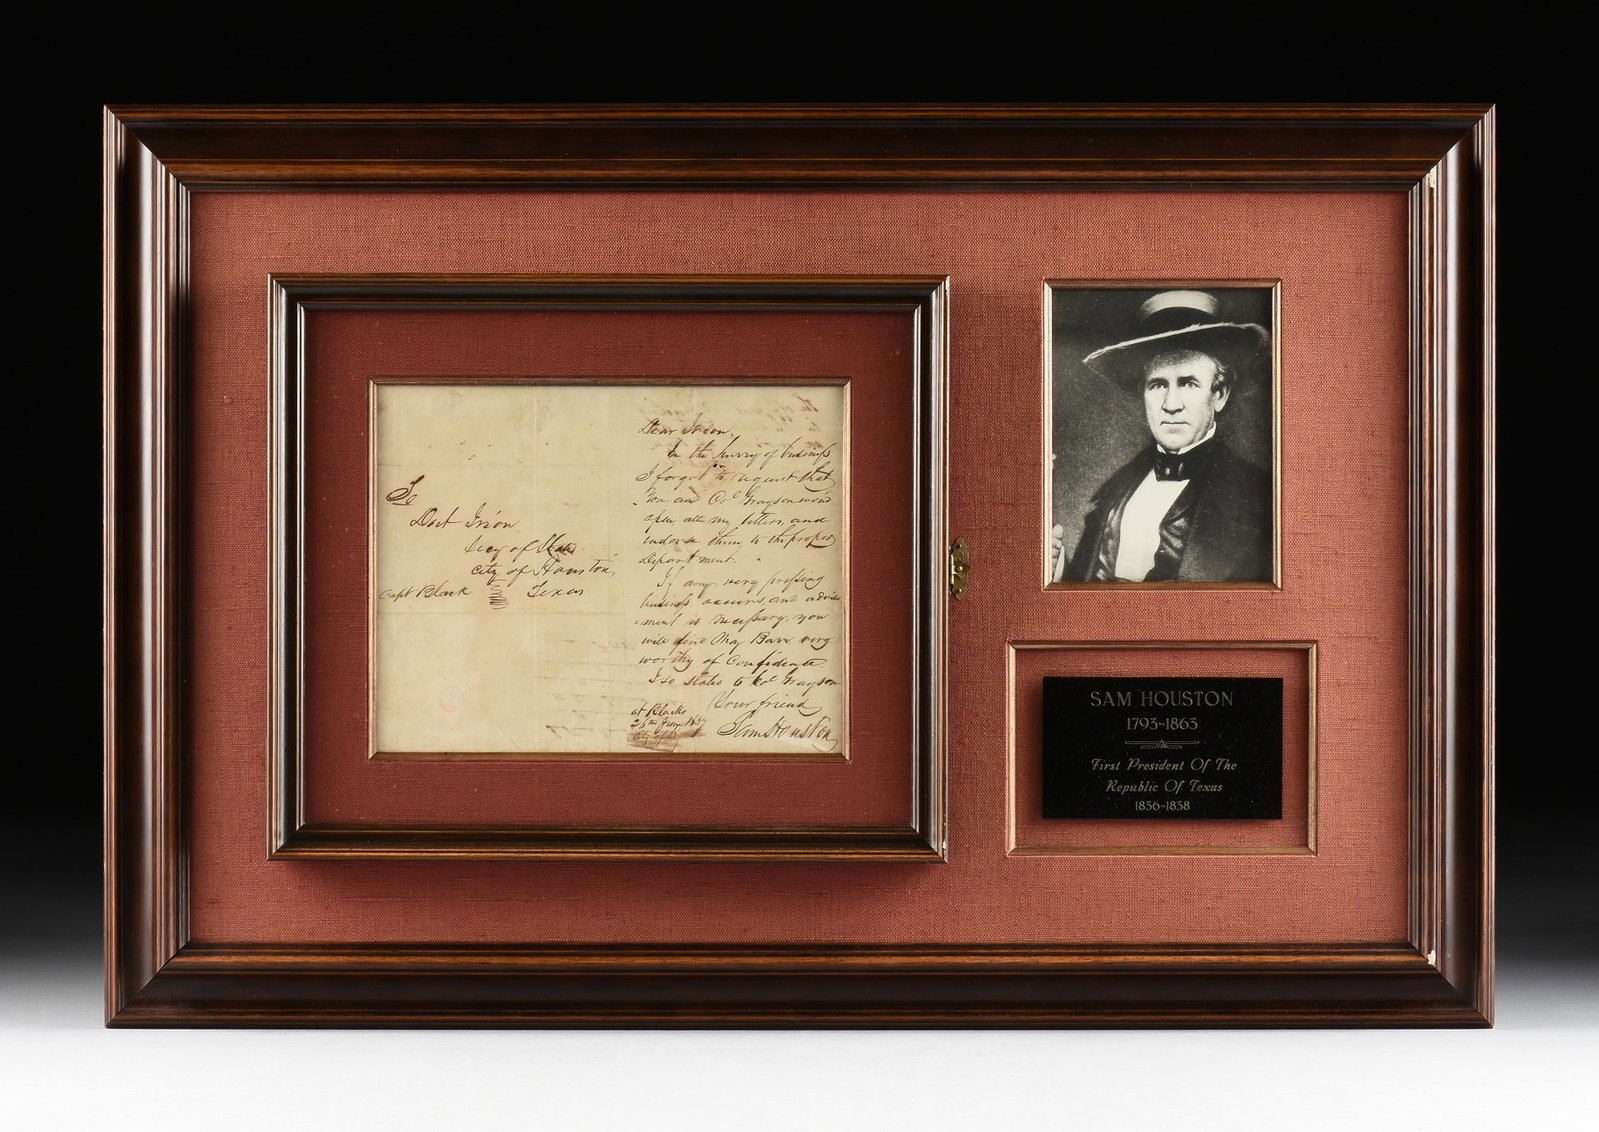 To
Doct Irion
Secy of State
City of Houston
Capt Black Texas
Dear Irion,
In the hurry of business
I forgot to request that
You and Col Grayson would
open, all my letters, and
endorse them to the proper
Department.
If any very pressing
business occurs and advise
-ment is necessary, you
will find Maj Barr, very
worthy of Confidence
I so states to Col Grayson
Your friend
Sam Houston
at Blacks
25th June 1837
SAM HOUSTON
1793~1863
First President Of The
Republic Of Texas
1836~1838